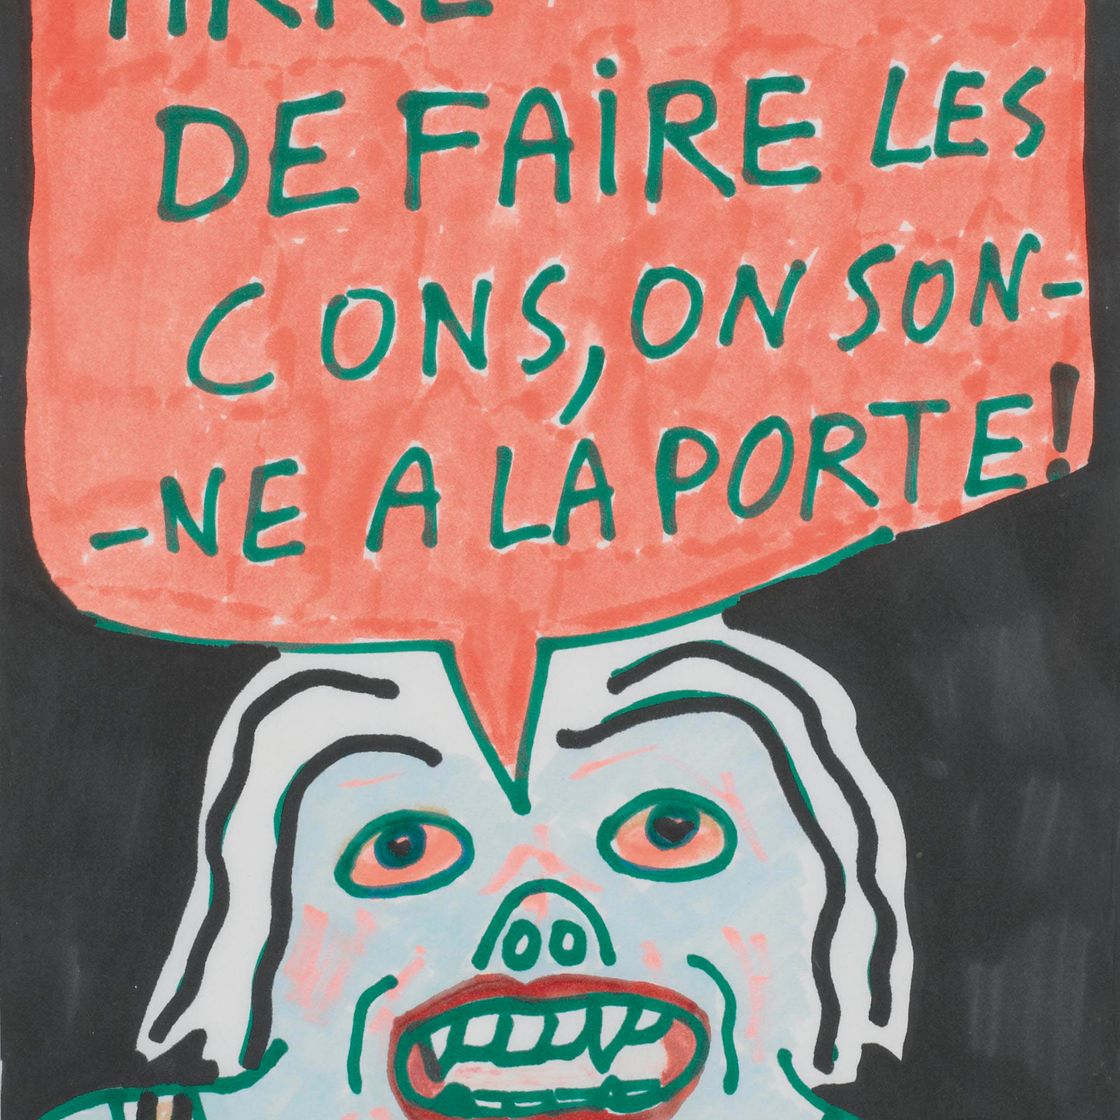 DE FAiRE LES
CONS, ON SON-
-NE A LA PORTE!